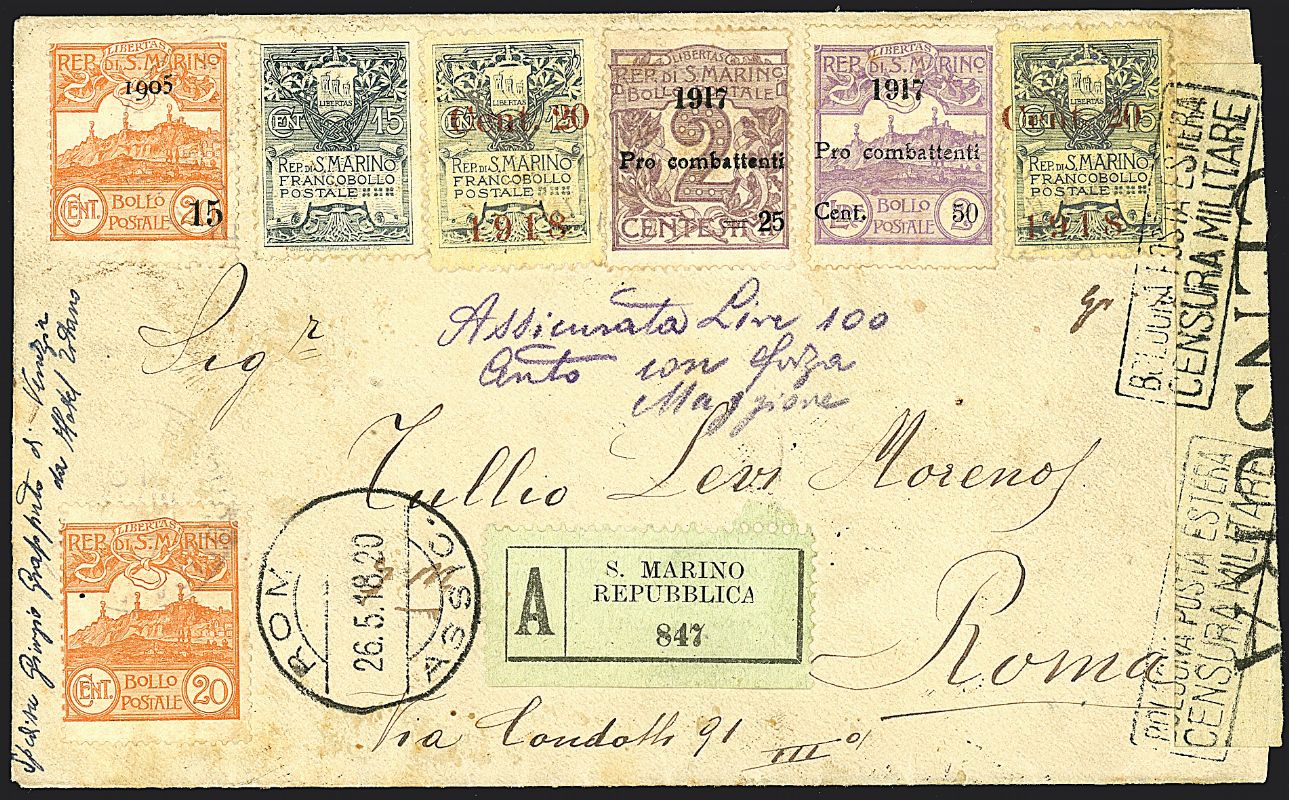 LIBERTAS
REP. DI S. MARINO
1905
CENT. BOLLO POSTALE 20
15
LIBERTAS
CENT 15
REP. DI S. MARINO
FRANCOBOLLO
POSTALE
LIBERTAS
CENT 15
Cent. 20
REP. DI S. MARINO
FRANCOBOLLO
POSTALE
1918
LIBERTAS
REP. DI S. MARINO
BOLLO POSTALE
1917
2
Pro combattenti
CENTESIMI
25
LIBERTAS
REP. DI S. MARINO
1917
Pro combattenti
BOLLO
POSTALE
Cent. 50
LIBERTAS
Cent. 20
15
REP. DI S. MARINO
FRANCOBOLLO
POSTALE
1918
Assicurata Lire 100
Cento con forza
Maggione
Sigr
Tullio Levi Morenos
Roma
Via Condotti 91 IIIo
LIBERTAS
REP. DI S. MARINO
CENT. BOLLO POSTALE 20
ROM
ASSIC.
26.5.18.20
A
S. MARINO
REPUBBLICA
847
Giorgio
Venezia
da Hotel
POSTA ESTERA
CENSURA MILITARE
BOLOGNA POSTA ESTERA
CENSURA MILITARE